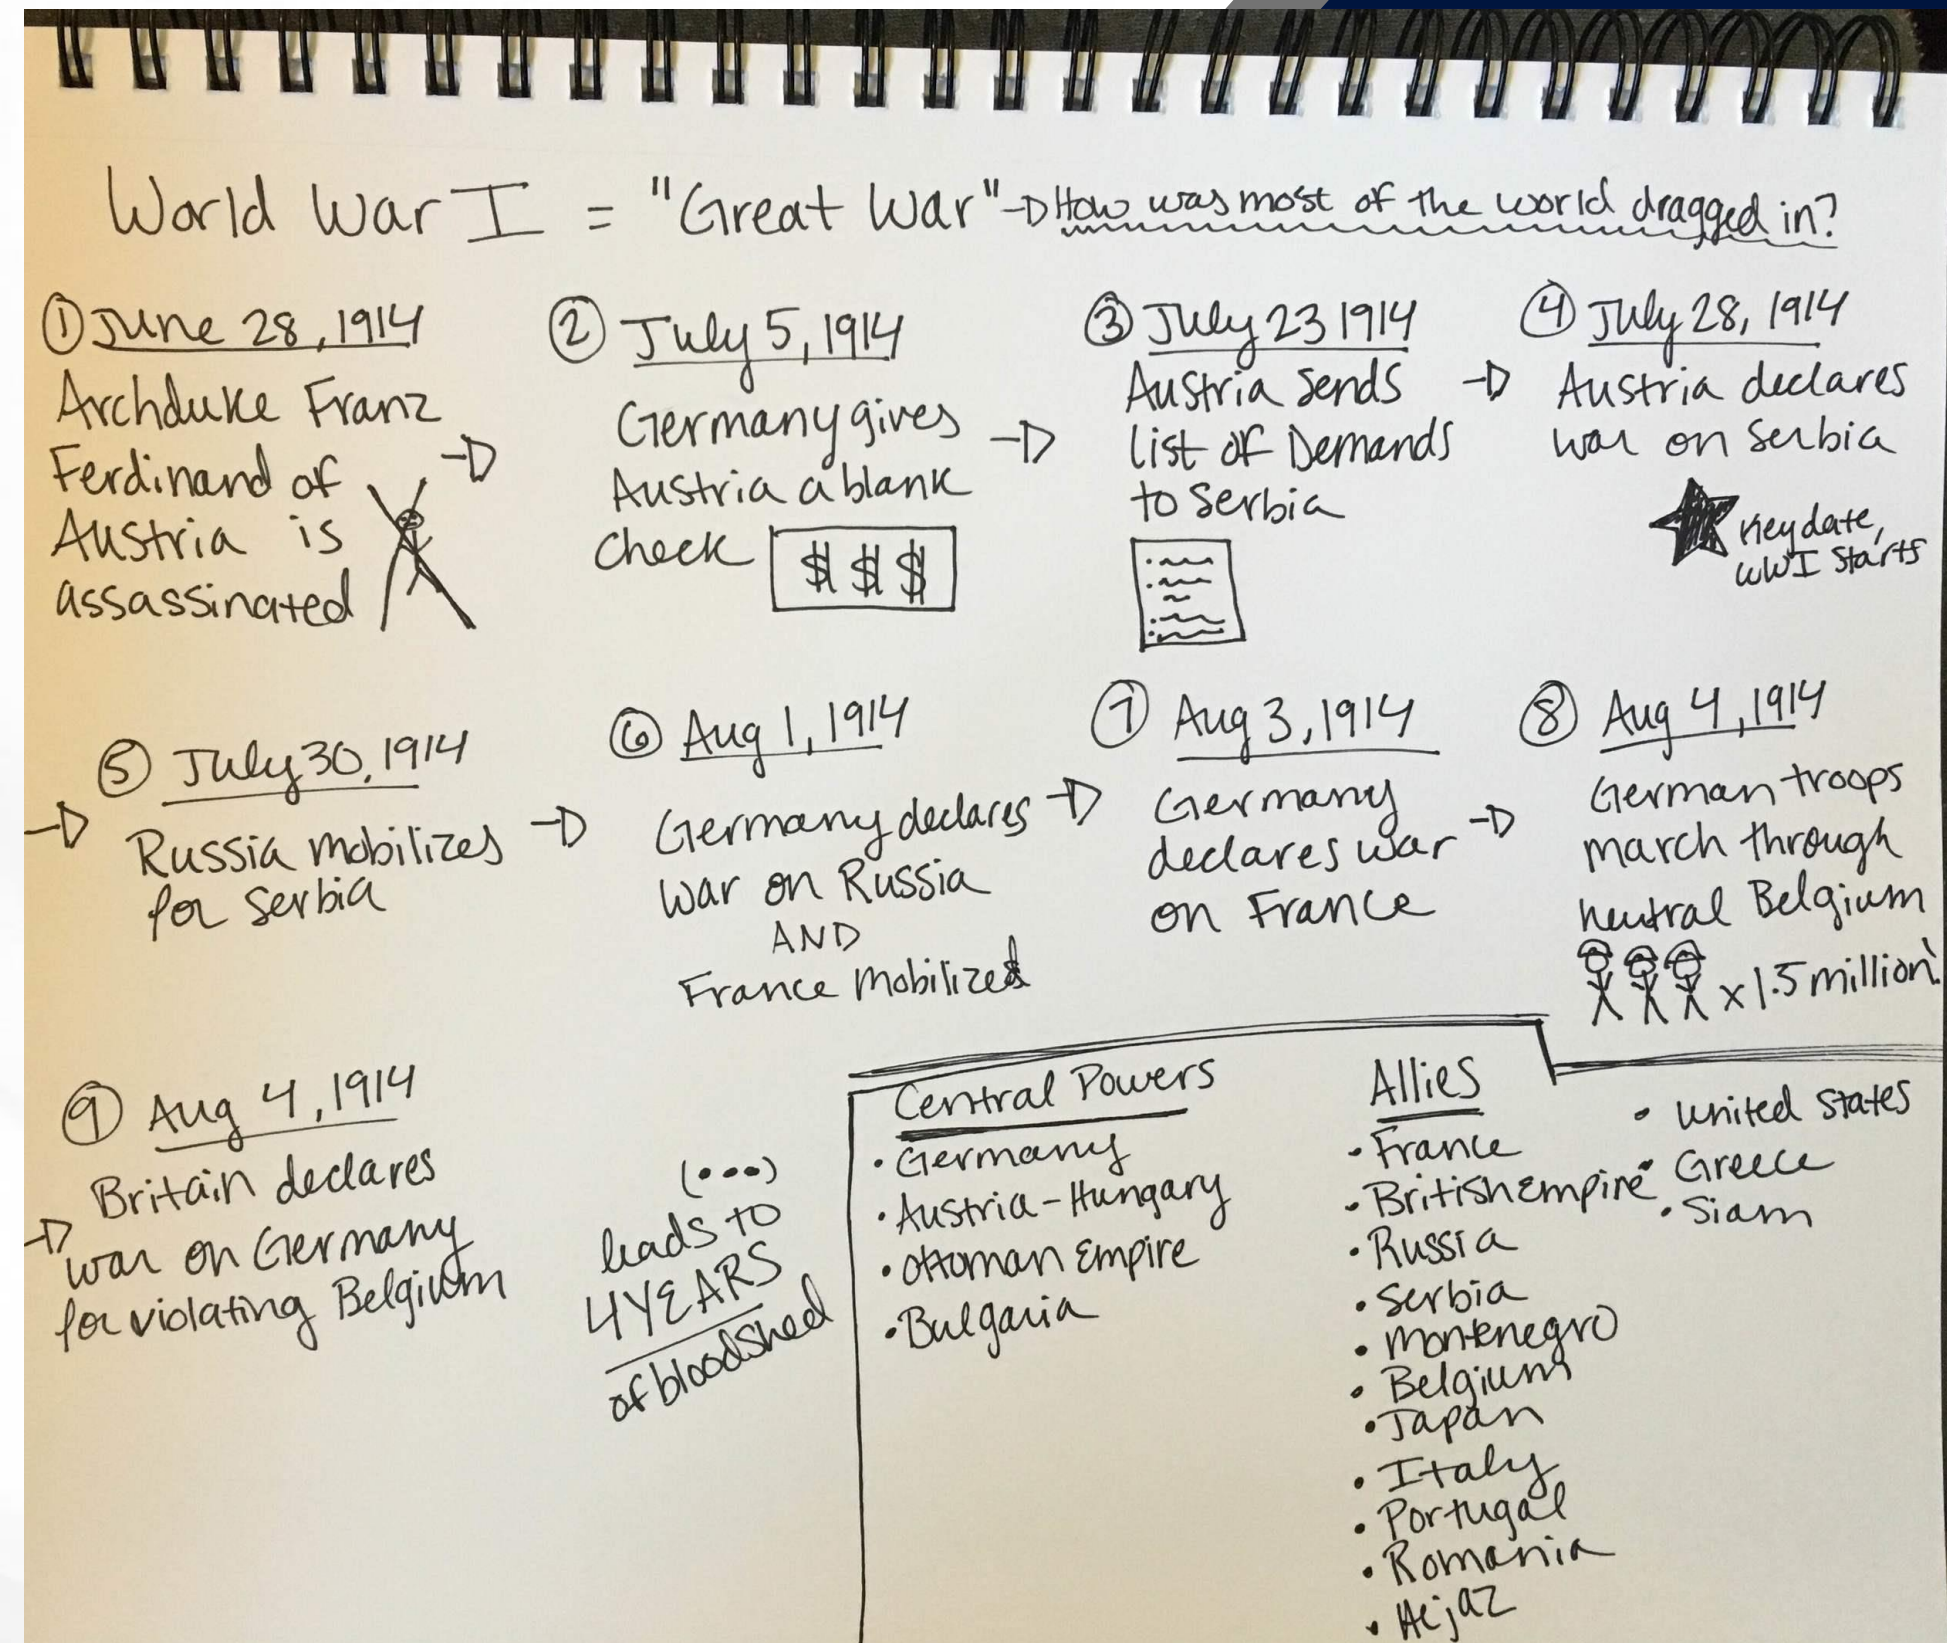 World War I = "Great War" → How was most of the world dragged in?
① June 28, 1914
Archduke Franz
Ferdinand of
Austria is
assassinated
② July 5, 1914
Germany gives
Austria a blank
check
$ $ $
③ July 23 1914
Austria sends
list of Demands
to Serbia
④ July 28, 1914
Austria declares
war on Serbia
Key date,
WWI starts
⑤ July 30, 1914
Russia mobilizes
for Serbia
⑥ Aug 1, 1914
Germany declares
war on Russia
AND
France mobilized
⑦ Aug 3, 1914
Germany
declares war
on France
⑧ Aug 4, 1914
German troops
march through
neutral Belgium
x 1.5 million!
⑨ Aug 4, 1914
Britain declares
war on Germany
for violating Belgium
(...)
leads to
4 YEARS
of bloodshed
Central Powers
• Germany
• Austria-Hungary
• Ottoman Empire
• Bulgaria
Allies
• France
• British Empire
• Russia
• Serbia
• Montenegro
• Belgium
• Japan
• Italy
• Portugal
• Romania
• Hejaz
• United States
• Greece
• Siam